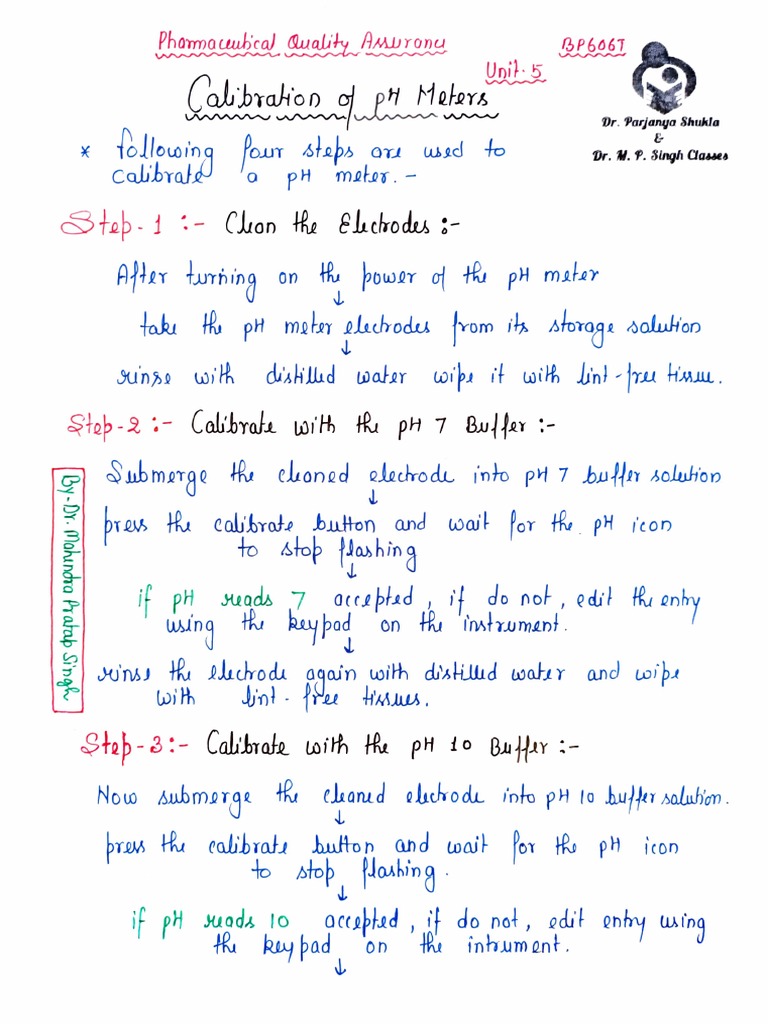 Pharmaceutical Quality Assurance BP606T
Unit-5
Calibration of pH Meters
Dr. Parjanya Shukla
&
Dr. M. P. Singh Classes
* following four steps are used to
calibrate a pH meter. -
Step-1 :- Clean the Electrodes :-
After turning on the power of the pH meter
↓
take the pH meter electrodes from its storage solution
↓
rinse with distilled water wipe it with lint-free tissue.
Step-2 :- Calibrate with the pH 7 Buffer :-
Submerge the cleaned electrode into pH 7 buffer solution
↓
press the calibrate button and wait for the pH icon
to stop flashing
↓
if pH reads 7 accepted, if do not, edit the entry
using the keypad on the instrument.
↓
rinse the electrode again with distilled water and wipe
with lint-free tissues.
By-Dr. Mahindra Pratap Singh
Step-3 :- Calibrate with the pH 10 Buffer :-
Now submerge the cleaned electrode into pH 10 buffer solution.
↓
press the calibrate button and wait for the pH icon
to stop flashing.
↓
if pH reads 10 accepted, if do not, edit entry using
the keypad on the intrument.
↓